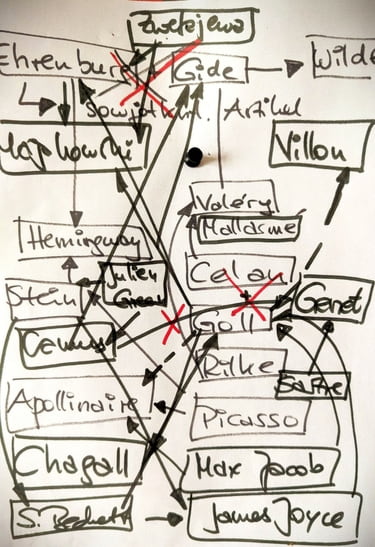 Zwetajewa
Ehrenburg
Gide
Wilde
Artikel
Majakowski
Villon
Valéry
Mallarmé
Hemingway
Julien
Green
Celan
Stein
Genet
Goll
Camus
Rilke
Sartre
Apollinaire
Picasso
Chagall
Max Jacob
S. Beckett
James Joyce